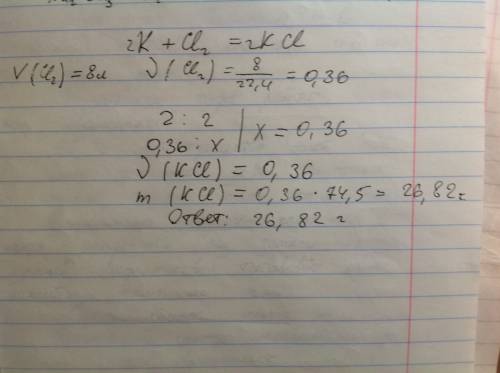 2K + Cl₂ = 2KCl
V(Cl₂) = 8л ν(Cl₂) = 8/22,4 = 0,36
2 : 2
0,36 : x | x = 0,36
ν(KCl) = 0,36
m (KCl) = 0,36 · 74,5 = 26,82 г
Ответ: 26,82 г